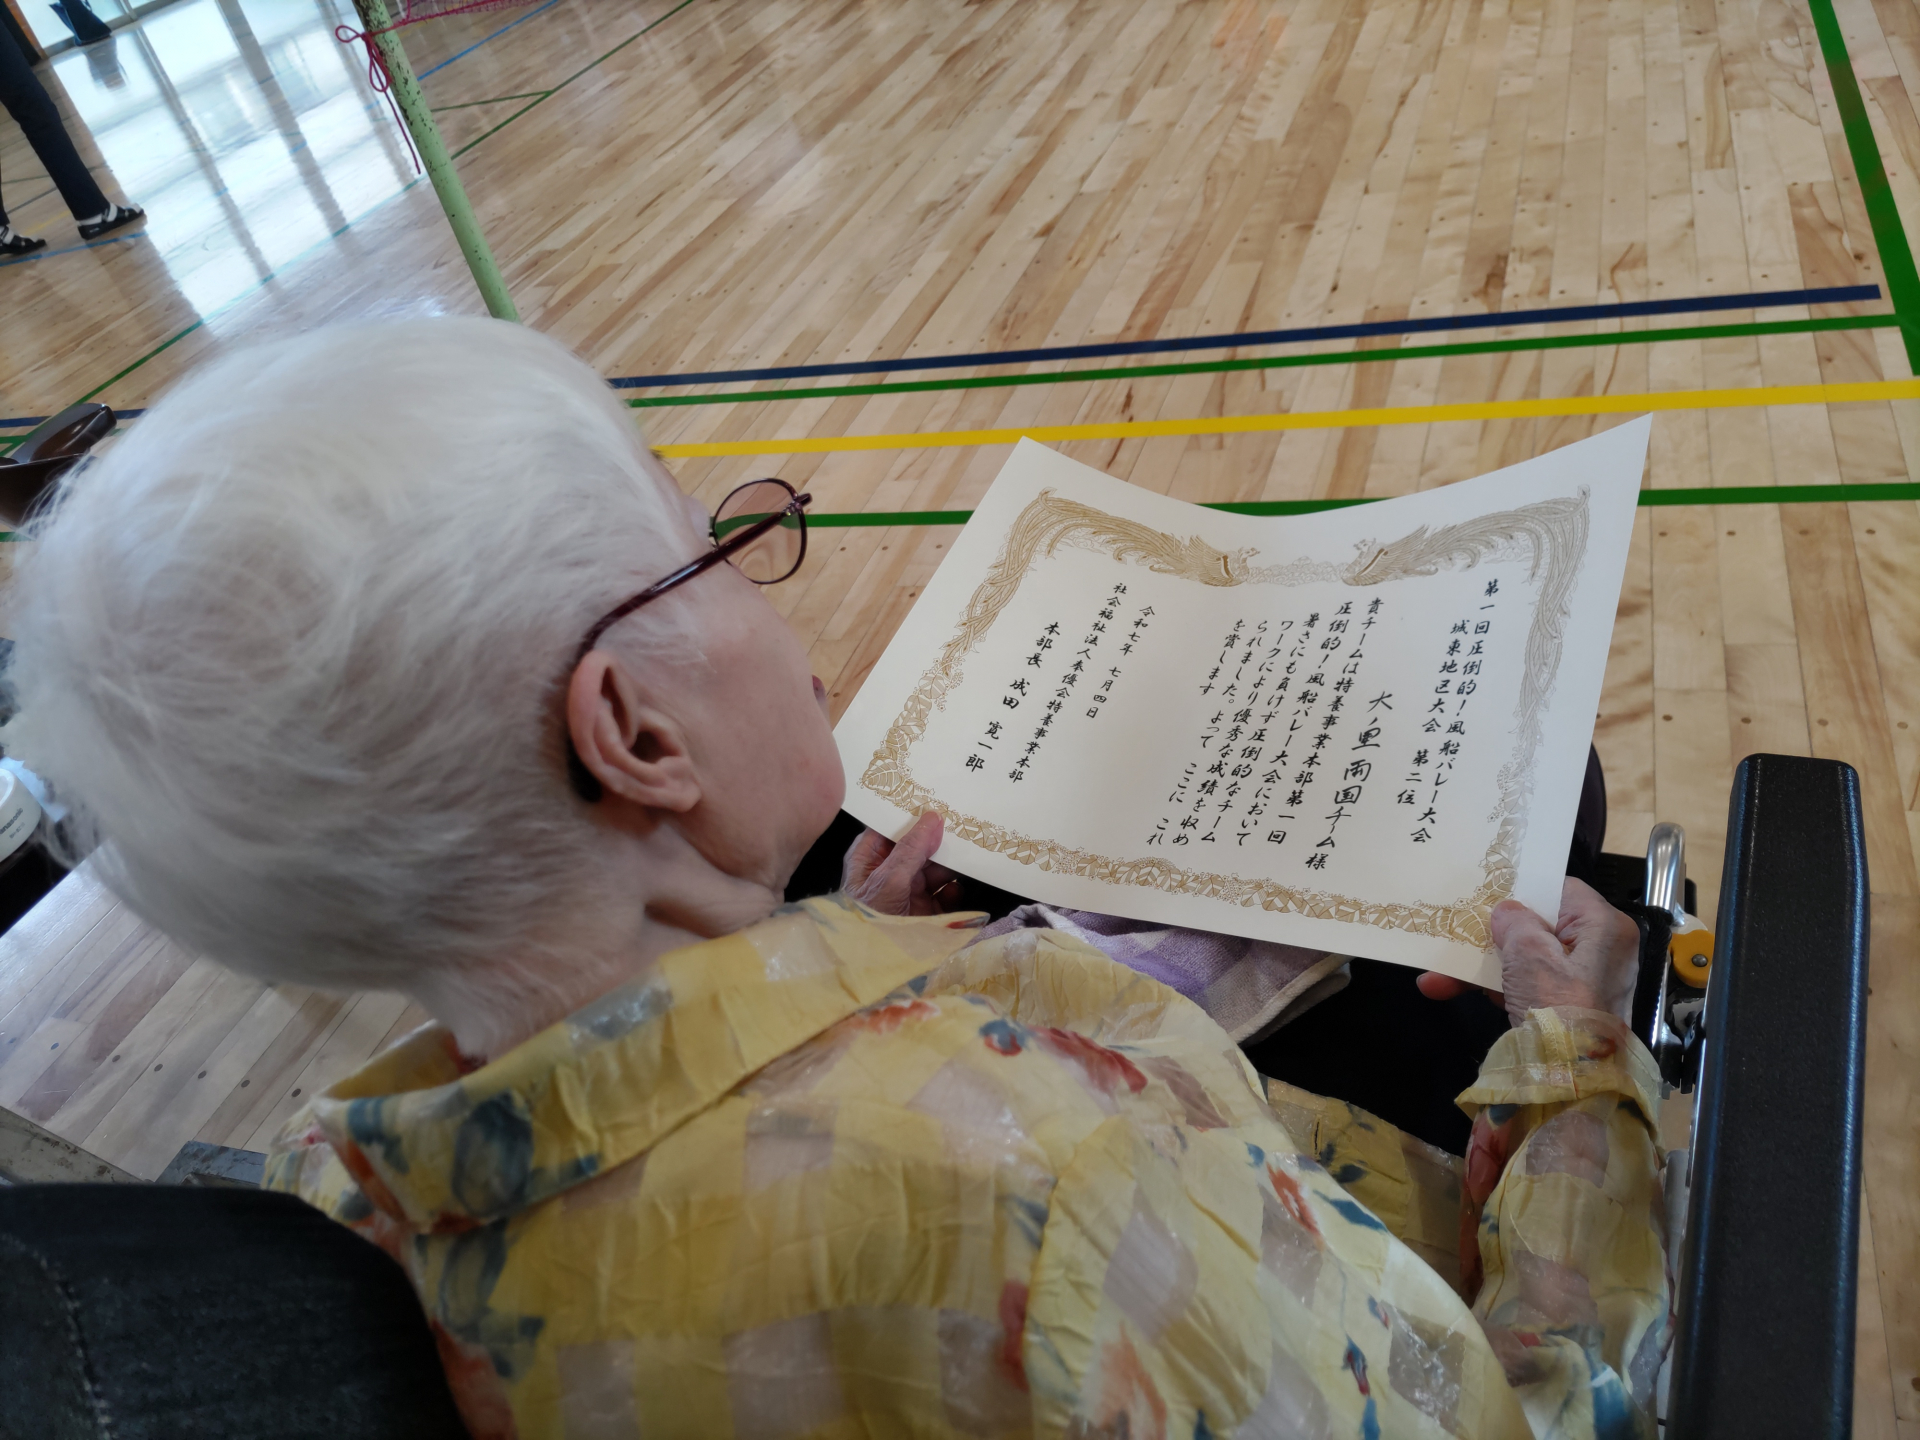 第一回圧倒的!風船バレー大会
城東地区大会 第二位
大ノ里両国チーム様
貴チームは特養事業本部第一回
圧倒的!風船バレー大会において
暑さにも負けず圧倒的なチーム
ワークにより優秀な成績を収め
られました。よって ここに これ
を賞します
令和七年 七月四日
社会福祉法人奉優会特養事業本部
本部長 成田 寛一郎
Panasonic